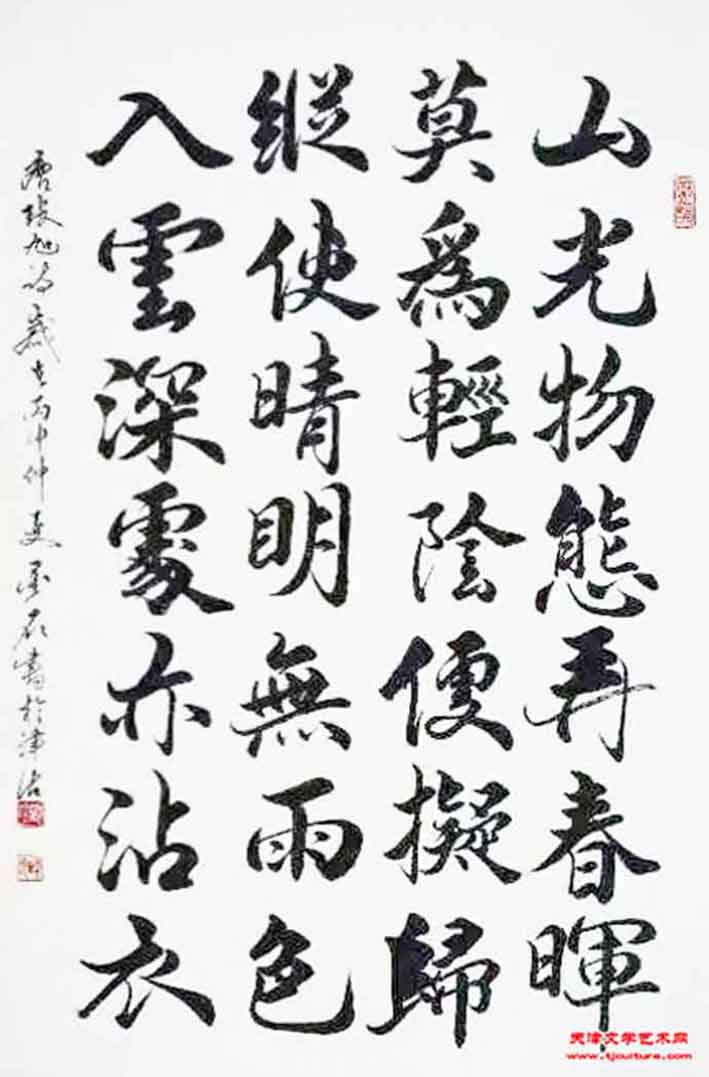 山光物態再春暉
莫為輕陰便擬歸
縱使晴明無雨色
入雲深處亦沾衣
唐張旭詩 歲在丙申仲夏 墨石書於津沽
天津文学艺术网
www.tjculture.com